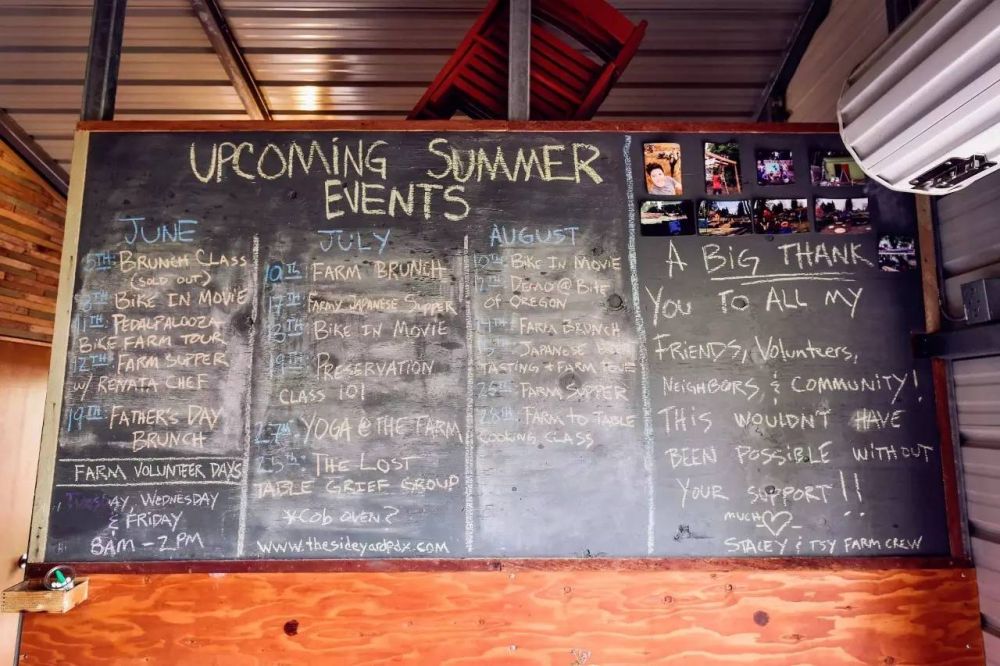 UPCOMING SUMMER
EVENTS
JUNE
5TH: BRUNCH CLASS
(SOLD OUT)
BIKE IN MOVIE
11TH: PEDALPALOOZA
BIKE FARM TOUR
12TH: FARM SUPPER
W/ RENATA CHEF
19TH: FATHER'S DAY
BRUNCH
FARM VOLUNTEER DAYS
TUESDAY, WEDNESDAY
& FRIDAY
8AM - 2PM
JULY
10TH: FARM BRUNCH
17TH: FARMY JAPANESE SUPPER
BIKE IN MOVIE
PRESERVATION
CLASS 101
27TH: YOGA @ THE FARM
25TH: THE LOST
TABLE GRIEF GROUP
*COB OVEN?
www.thesideyardpdx.com
AUGUST
BIKE IN MOVIE
DEMO @ BITE
OF OREGON
FARM BRUNCH
JAPANESE
TASTING + FARM
FARM SUPPER
28TH: FARM TO TABLE
COOKING CLASS
A BIG THANK
YOU TO ALL MY
FRIENDS, VOLUNTEERS,
NEIGHBORS, & COMMUNITY!
THIS WOULDN'T HAVE
BEEN POSSIBLE WITHOUT
YOUR SUPPORT!!
MUCH ♡ -
STACEY & TSY FARM CREW